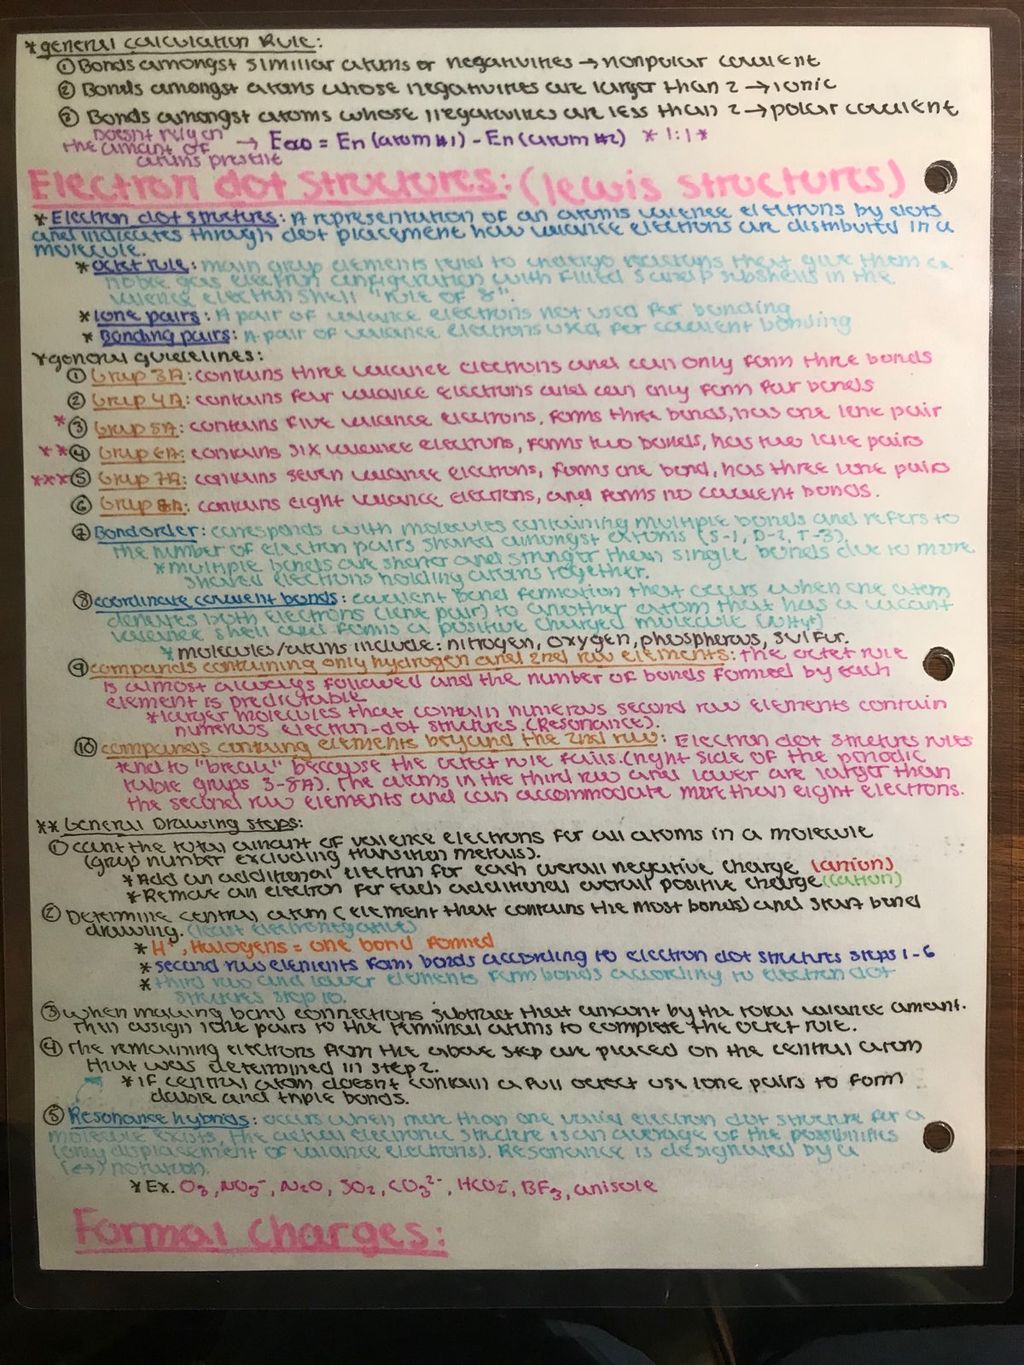 *general calculation Rule:
① Bonds amongst similiar atoms or negativities → nonpolar covalent
② Bonds amongst atoms whose negativities are larger than 2 → ionic
③ Bonds amongst atoms whose negativities are less than 2 → polar covalent
doesnt rely on
the amant of → = En (atom #1) - En (atom #2) * 1:1 *
atoms present
Electron dot structures: (lewis structures)
* Electron dot structures: A representation of an atoms valence electrons by dots
and indicates through dot placement how valence electrons are distributed in a
molecule.
* octet rule: main group elements tend to undergo reactions that give them a
noble gas electron configuration with filled s and p subshells in the
valence electron shell "rule of 8".
* lone pairs: A pair of valance electrons not used for bonding
* Bonding pairs: A pair of valance electrons used for covalent bonding
*general guidelines:
① Group 3A: contains three valance electrons and can only form three bonds
② Group 4A: contains four valance electrons and can only form four bonds
* ③ Group 5A: contains five valance electrons, forms three bonds, has one lone pair
** ④ Group 6A: contains six valance electrons, forms two bonds, has two lone pairs
*** ⑤ Group 7A: contains seven valance electrons, forms one bond, has three lone pairs
⑥ Group 8A: contains eight valance electrons, and forms no covalent bonds.
⑦ Bond order: corresponds with molecules containing multiple bonds and refers to
the number of electron pairs shared amongst atoms (S-1, D-2, T-3).
* multiple bonds are shorter and stronger then single bonds due to more
shared electrons holding atoms together.
⑧ coordinate covalent bonds: covalent bond formation that occurs when one atom
donates both electrons (lone pair) to another atom that has a vacant
valance shell and forms a positive charged molecule (NH4+)
* molecules/atoms include: nitrogen, oxygen, phospherous, sulfur.
⑨ compands containing only hydrogen and 2nd row elements: the octet rule
is almost always followed and the number of bonds formed by each
element is predictable
* larger molecules that contain numerous second row elements contain
numerous electron-dot structures (Resonance).
⑩ compands containing elements beyond the 2nd row: Electron dot structures rules
tend to "break" because the octet rule fails. (right side of the periodic
table groups 3-8A). The atoms in the third row and lower are larger than
the second row elements and can accommodate more then eight electrons.
** General Drawing steps:
① count the total amount of valence electrons for all atoms in a molecule
(group number excluding transition metals).
* Add an additional electron for each overall negative charge (anion)
* Remove an electron for each additional overall positive charge (cation)
② Determine central atom (element that contains the most bonds) and start bond
drawing. (least electronegative)
* H+, Halogens = one bond formed
* second row elements form bonds according to electron dot structures steps 1-6
* third row and lower elements form bonds according to electron dot
structures step 10.
③ when making bond connections subtract that amount by the total valance amount.
Then assign lone pairs to the terminal atoms to complete the octet rule.
④ The remaining electrons from the above step are placed on the central atom
that was determined in step 2.
* if central atom doesnt contain a full octect use lone pairs to form
double and triple bonds.
⑤ Resonance hybrids: occurs when more than one valid electron dot structure for a
molecule exists, the actual electronic structure is an average of the possibilities
(only displacement of valance electrons). Resonance is designated by a
(↔) notation.
* Ex. O3, NO3-, N2O, SO2, CO3²⁻, HCO2-, BF3, anisole
Formal charges: